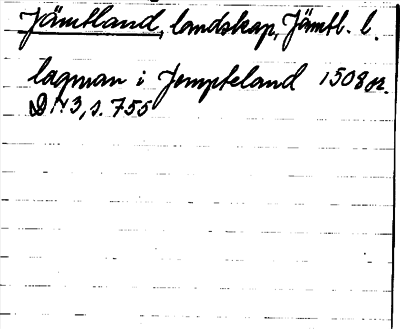 Jämtland, landskap, Jämtl. l.
lagman i Jempteland 1508 or.
DN 3, s. 755